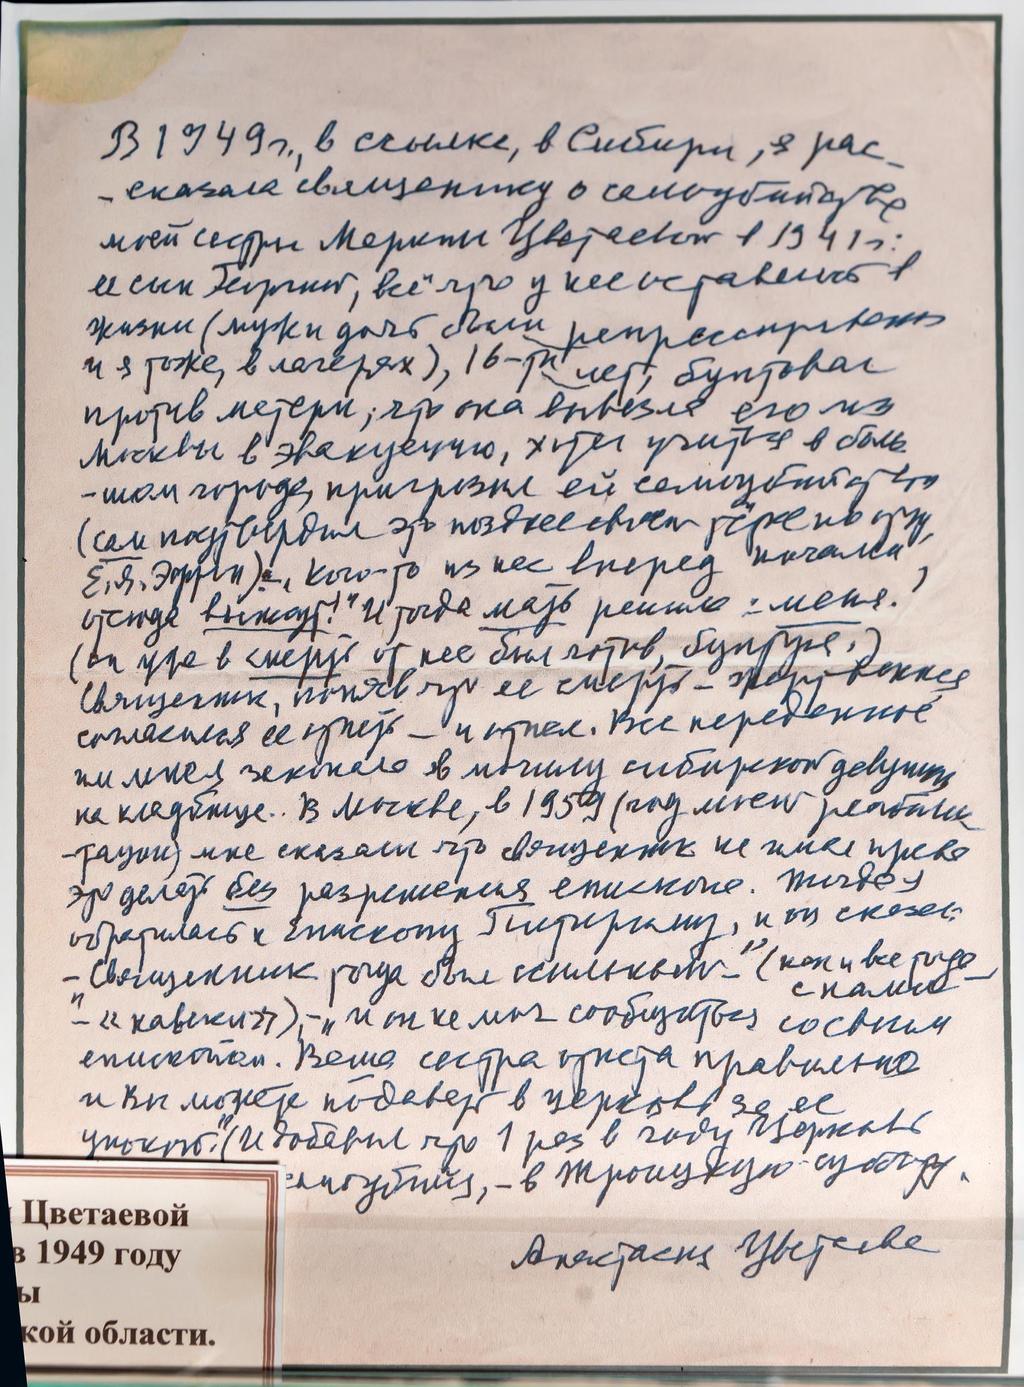 В 1949 г., в ссылке, в Сибири, я рас-
-сказала священнику о самоубийстве
моей сестры Марины Цветаевой в 1941 г.:
ее сын Георгий, всё что у нее оставалось в
жизни (муж и дочь были репрессированы
и я тоже, в лагерях), 16-ти лет, бунтовал
против матери, что она вывезла его из
Москвы в эвакуацию, хотел учиться в боль-
-шом городе, пригрозил ей самоубийством
(сам подтвердил это позднее своей тётке по отцу,
Е.Я. Эфрон) –, кого-то из нас вперед ногами
отсюда вынесут!" И тогда мать решила: – меня.
(он уже в смерть от нее был готов, бунтуя.)
Священник, поняв что ее смерть – жертвенная
согласился ее отпеть – и отпел. Все переданное
им мне я закопала в могилу сибирской девушки
на кладбище.. В Москве, в 1959 (год моей реабили-
-тации) мне сказали что священник не имел права
это делать без разрешения епископа. Тогда я
обратилась к Епископу Питириму, и он сказал:
– Священник тогда был ссыльным –" (как и все тогда
с нами
"– «навеки»), – „и он не мог сообщаться со своим
епископом. Ваша сестра отпета правильно
и Вы можете подавать в церковь за ее
упокой." (И добавил что 1 раз в году Церковь
самоубийц, – в Троицкую субботу.
Анастасия Цветаева
Цветаевой
в 1949 году
ы
кой области.